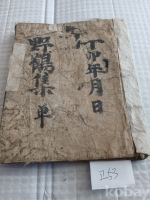 丁卯年 月 日
野鶴集 单
II53
kobay